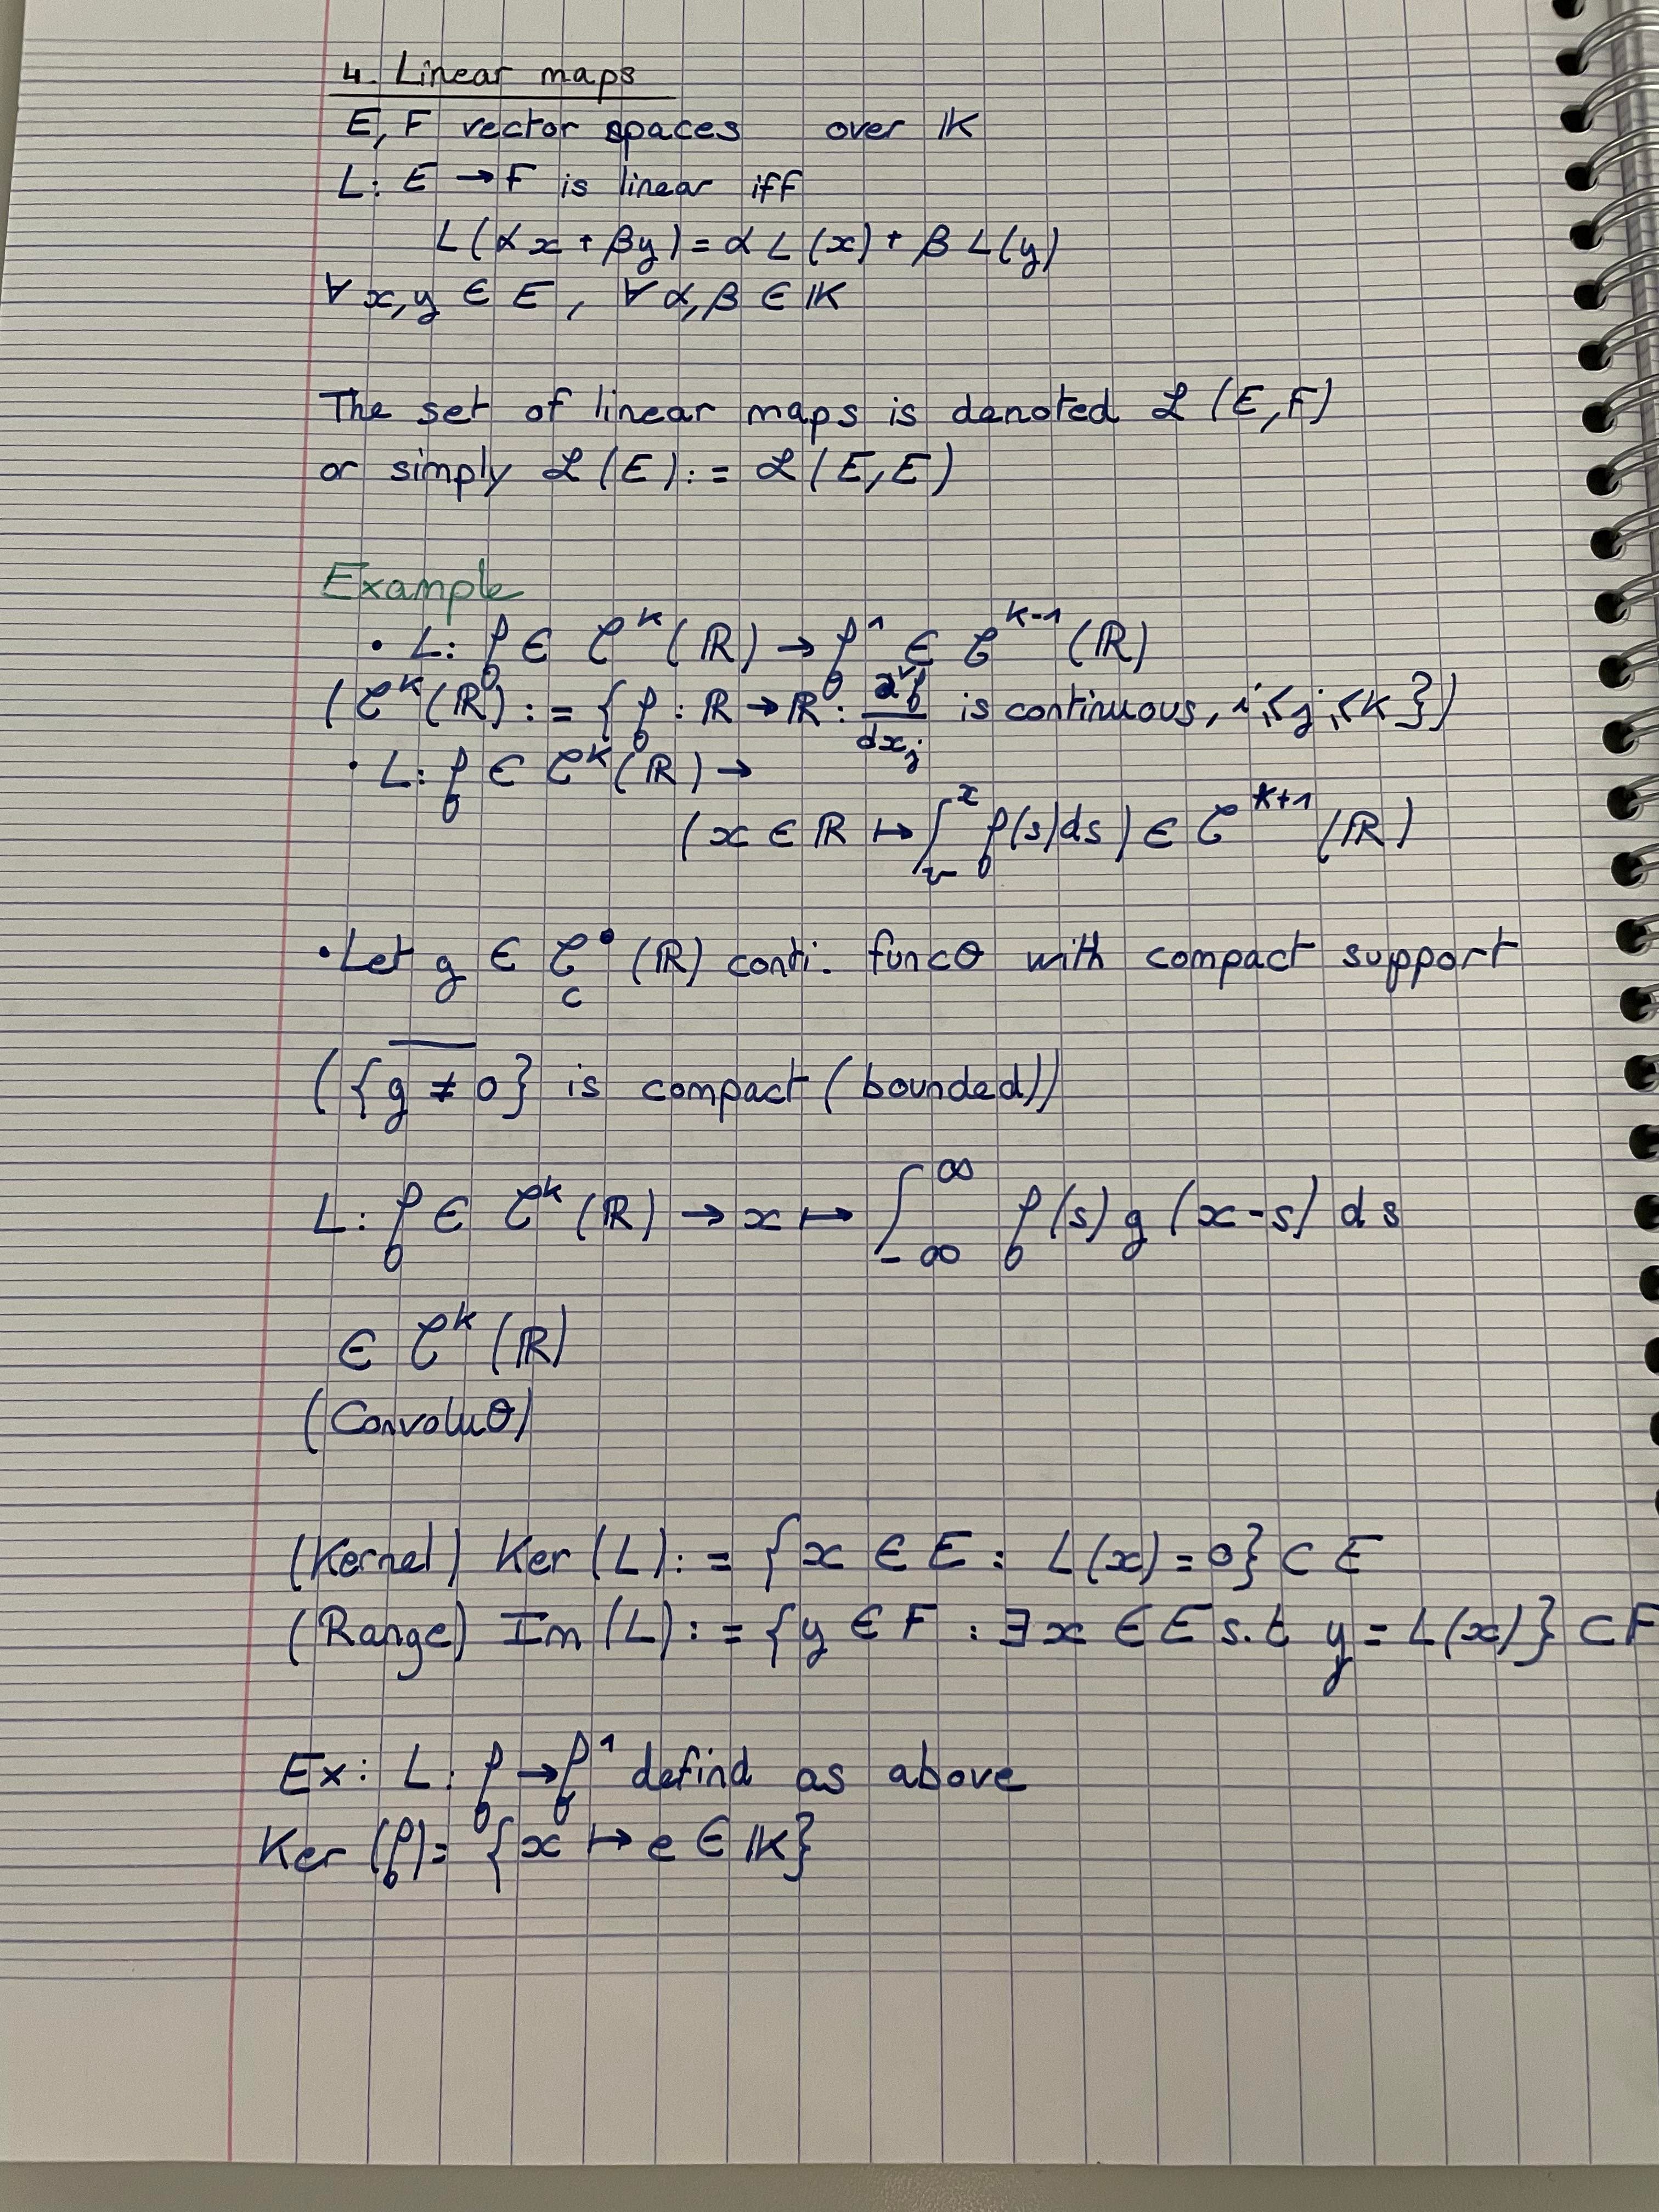 4. Linear maps
E, F vector spaces over 𝕂
L: E → F is linear iff
L(αx + βy) = α L(x) + β L(y)
∀ x, y ∈ E, ∀ α, β ∈ 𝕂
The set of linear maps is denoted ℒ(E, F)
or simply ℒ(E) := ℒ(E, E)
Example
• L: f ∈ 𝒞^k(ℝ) → f^1 ∈ 𝒞^{k-1}(ℝ)
(𝒞^k(ℝ) := {f : ℝ → ℝ : /dx_j is continuous, ≤ j ≤ k})
• L: f ∈ 𝒞^k(ℝ) →
(x ∈ ℝ ↦ ∫^x f(s)ds) ∈ 𝒞^{k+1}(ℝ)
• Let g ∈ 𝒞_c^0(ℝ) conti. funcθ with compact support
({g ≠ 0} is compact (bounded))
L: f ∈ 𝒞^k(ℝ) → x ↦ ∫_{-∞}^{∞} f(s) g(x-s) ds
∈ 𝒞^k(ℝ)
(Convoluθ)
(Kernel) Ker(L) := {x ∈ E : L(x) = 0} ⊂ E
(Range) Im(L) := {y ∈ F : ∃ x ∈ E s.t y = L(x)} ⊂ F
Ex: L: f → f^1 defind as above
Ker(f) = {x ↦ e ∈ 𝕂}